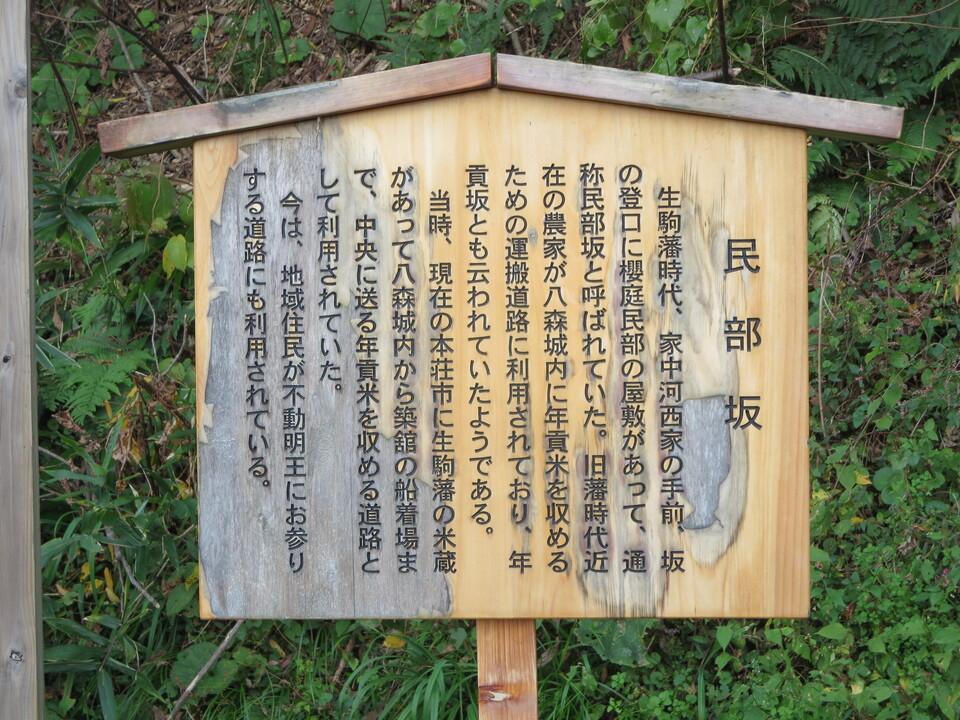 民部坂
生駒藩時代、家中河西家の手前、坂
の登口に櫻庭民部の屋敷があって、通
称民部坂と呼ばれていた。旧藩時代近
在の農家が八森城内に年貢米を収める
ための運搬道路に利用されており、年
貢坂とも云われていたようである。
当時、現在の本荘市に生駒藩の米蔵
があって八森城内から築舘の船着場ま
で、中央に送る年貢米を収める道路と
して利用されていた。
今は、地域住民が不動明王にお参り
する道路にも利用されている。